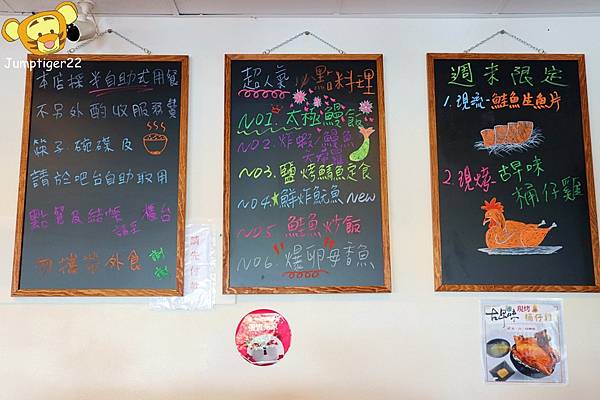 Jumptiger22
本店採半自助式用餐
不另外酌收服務費
筷子碗碟及
請於吧台自助取用
點餐及結帳請至櫃台
勿攜帶外食
謝謝
超人氣
點料理
NO1. 太極鰻飯
NO2. 炸蝦/鰻魚
天婦羅
NO3. 鹽烤鯖魚定食
NO4. ★鮮炸魷魚 New
NO5. 鮭魚炒飯
NO6. 爆卵母香魚
週末限定
1. 現流-鮭魚生魚片
2. 現烤-古早味
桶仔雞
古早味
現烤
桶仔雞